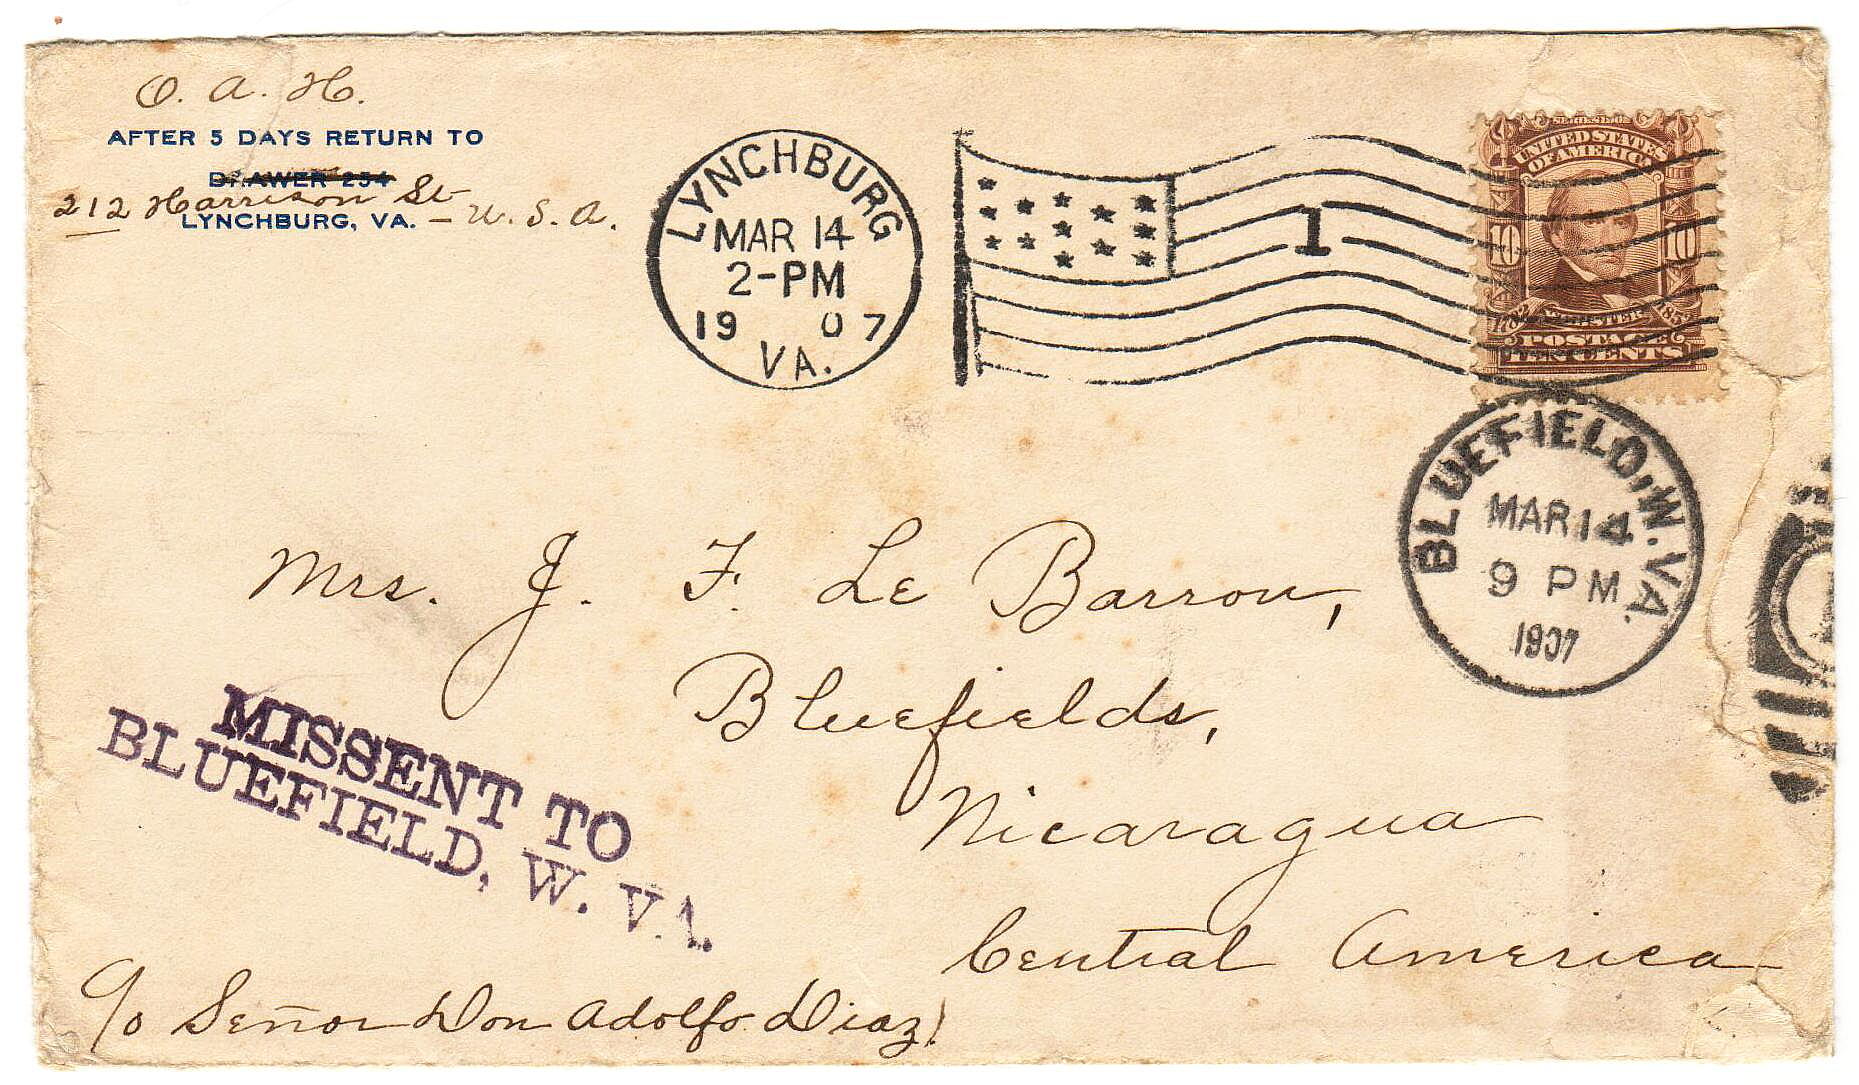 O. A. H.
AFTER 5 DAYS RETURN TO
DRAWER 254
212 Harrison St
LYNCHBURG, VA. - U. S. A.
LYNCHBURG
MAR 14
2-PM
19 07
VA.
1
UNITED STATES
OF AMERICA
10 10
1782 WEBSTER 1852
POSTAGE
TEN CENTS
BLUEFIELD, W. VA.
MAR 14
9 PM
1907
Mrs. J. F. Le Barron,
Bluefields,
Nicaragua
Central America
MISSENT TO
BLUEFIELD, W. VA.
c/o Señor Don Adolfo Diaz!